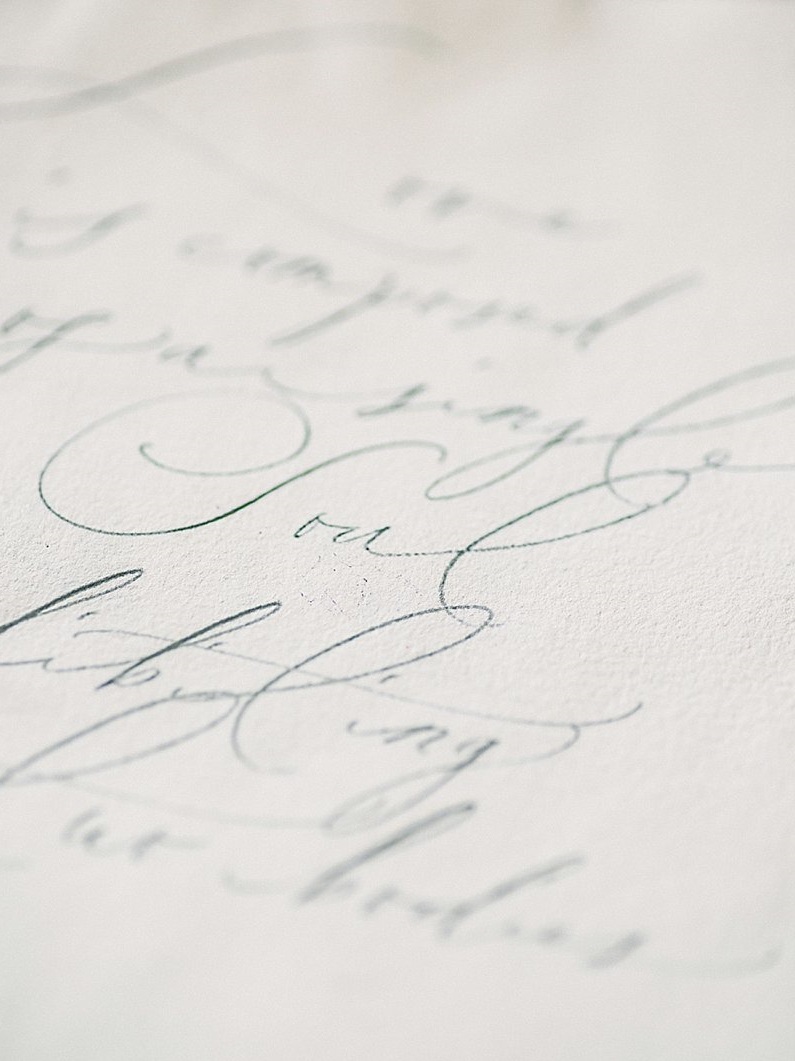 is composed
of a single
Soul
habiting
two bodies